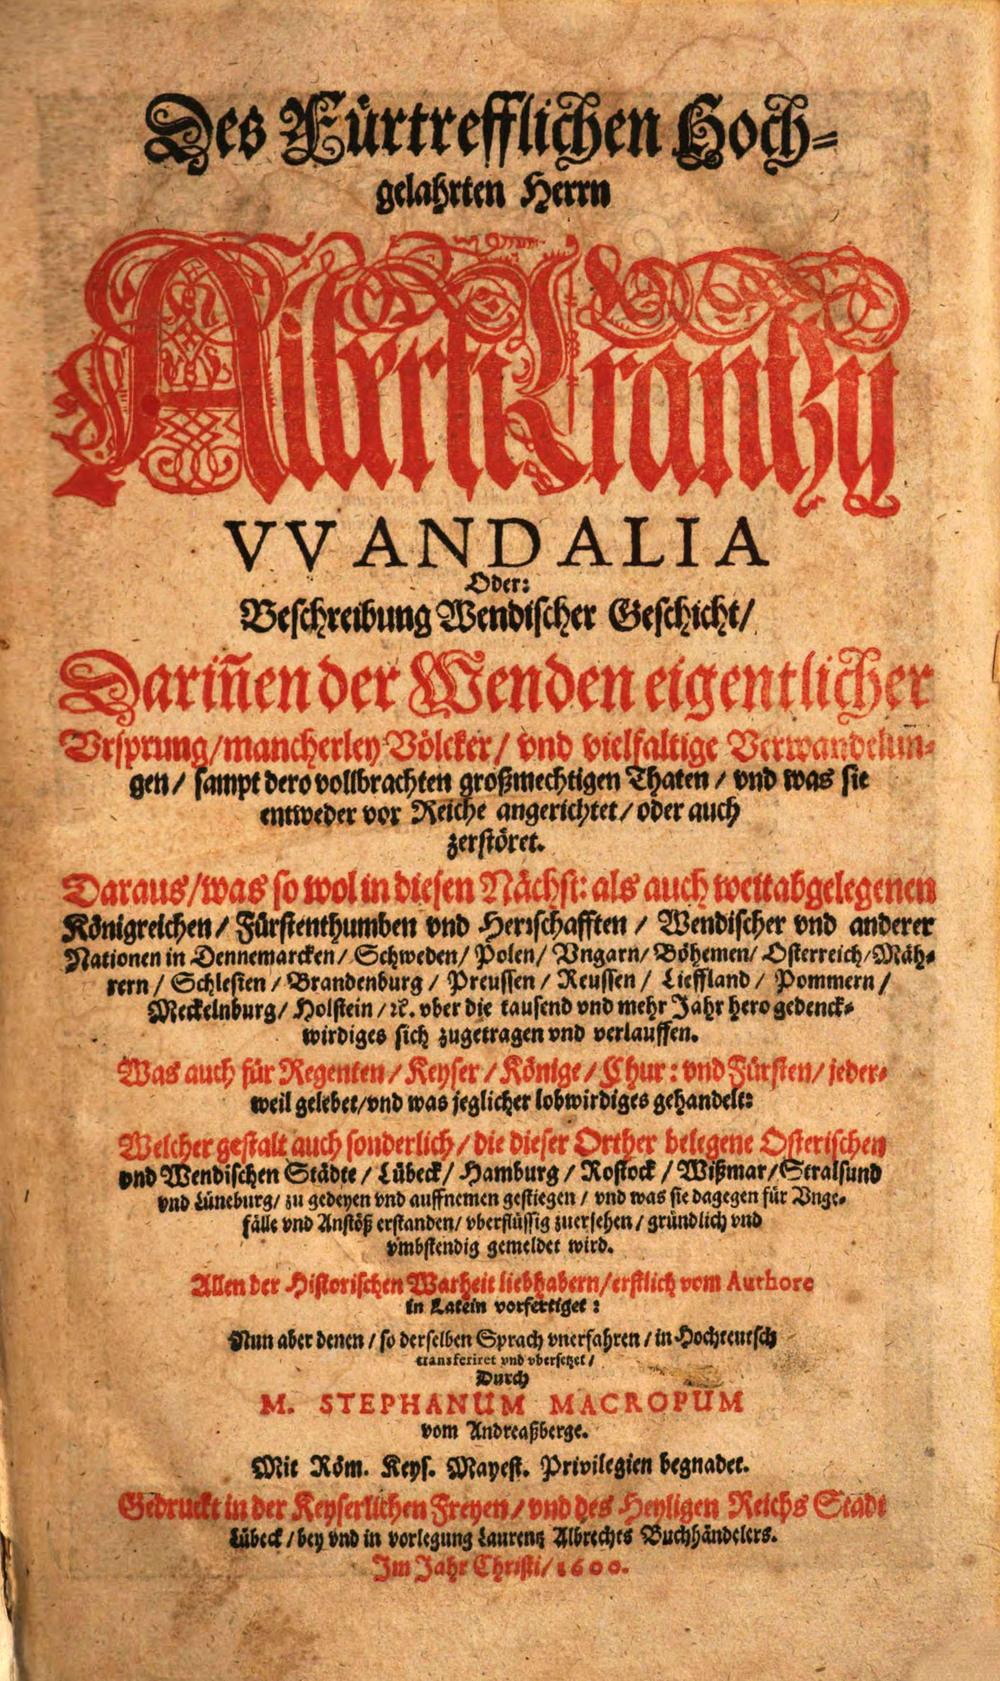 Des Fürtrefflichen Hoch-
gelahrten Herrn
Alberti Krantzij
VVANDALIA
Oder:
Beschreibung Wendischer Geschicht/
Dariñen der Wenden eigentlicher
Vrsprung/mancherley Völcker/ vnd vielfaltige Verwandelun-
gen/ sampt dero vollbrachten großmechtigen Thaten/ vnd was sie
entweder vor Reiche angerichtet/ oder auch
zerstöret.
Daraus/was so wol in diesen Nächst: als auch weitabgelegenen
Königreichen/ Fürstenthumben vnd Herrschafften/ Wendischer vnd anderer
Nationen in Dennemarcken/ Schweden/ Polen/ Vngarn/ Böhemen/ Osterreich/Mäh-
rern/ Schlesien/ Brandenburg/ Preussen/ Reussen/ Lieffland/ Pommern/
Meckelnburg/ Holstein/ ꝛc. vber die tausend vnd mehr Jahr hero gedenck-
wirdiges sich zugetragen vnd verlauffen.
Was auch für Regenten/ Keyser/ Könige/ Chur: vnd Fürsten/ jeder-
weil gelebet/vnd was jeglicher lobwirdiges gehandelt:
Welcher gestalt auch sonderlich/ die dieser Orther belegene Osterischen
vnd Wendischen Städte/ Lübeck/ Hamburg/ Rostock/ Wißmar/Stralsund
vnd Lüneburg/ zu gedeyen vnd auffnemen gestiegen/ vnd was sie dagegen für Vnge-
fälle vnd Anstöß erstanden/ vberflüssig zuersehen/ gründlich vnd
vmbstendig gemeldet wird.
Allen der Historischen Warheit liebhabern/erstlich vom Authore
in Latein vorfertiget:
Nun aber denen/ so derselben Sprach vnerfahren/ in Hochteutsch
transferiret vnd vbersetzet/
Durch
M. STEPHANUM MACROPUM
vom Andreaßberge.
Mit Röm. Keys. Mayest. Privilegien begnadet.
Gedruckt in der Keyserlichen Freyen/ vnd des Heyligen Reichs Stadt
Lübeck/ bey vnd in vorlegung Laurentz Albrechts Buchhändelers.
Im Jahr Christi/ 1600.